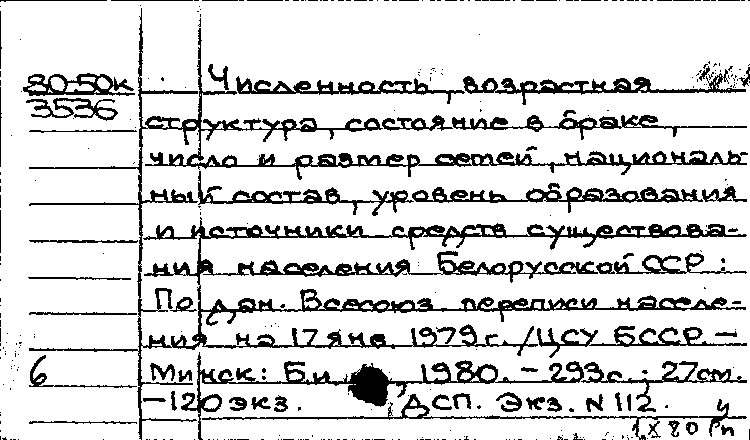 80-50к
3536
Численность, возрастная
структура, состояние в браке,
число и размер семей, националь-
ный состав, уровень образования
и источники средств существова-
ния населения Белорусской ССР:
По дан. Всесоюз. переписи населе-
ния на 17 янв. 1979 г. /ЦСУ БССР. –
6
Минск: Б.и., 1980. – 293с.; 27см.
– 120 экз. ДСП. Экз. N 112.
1X80